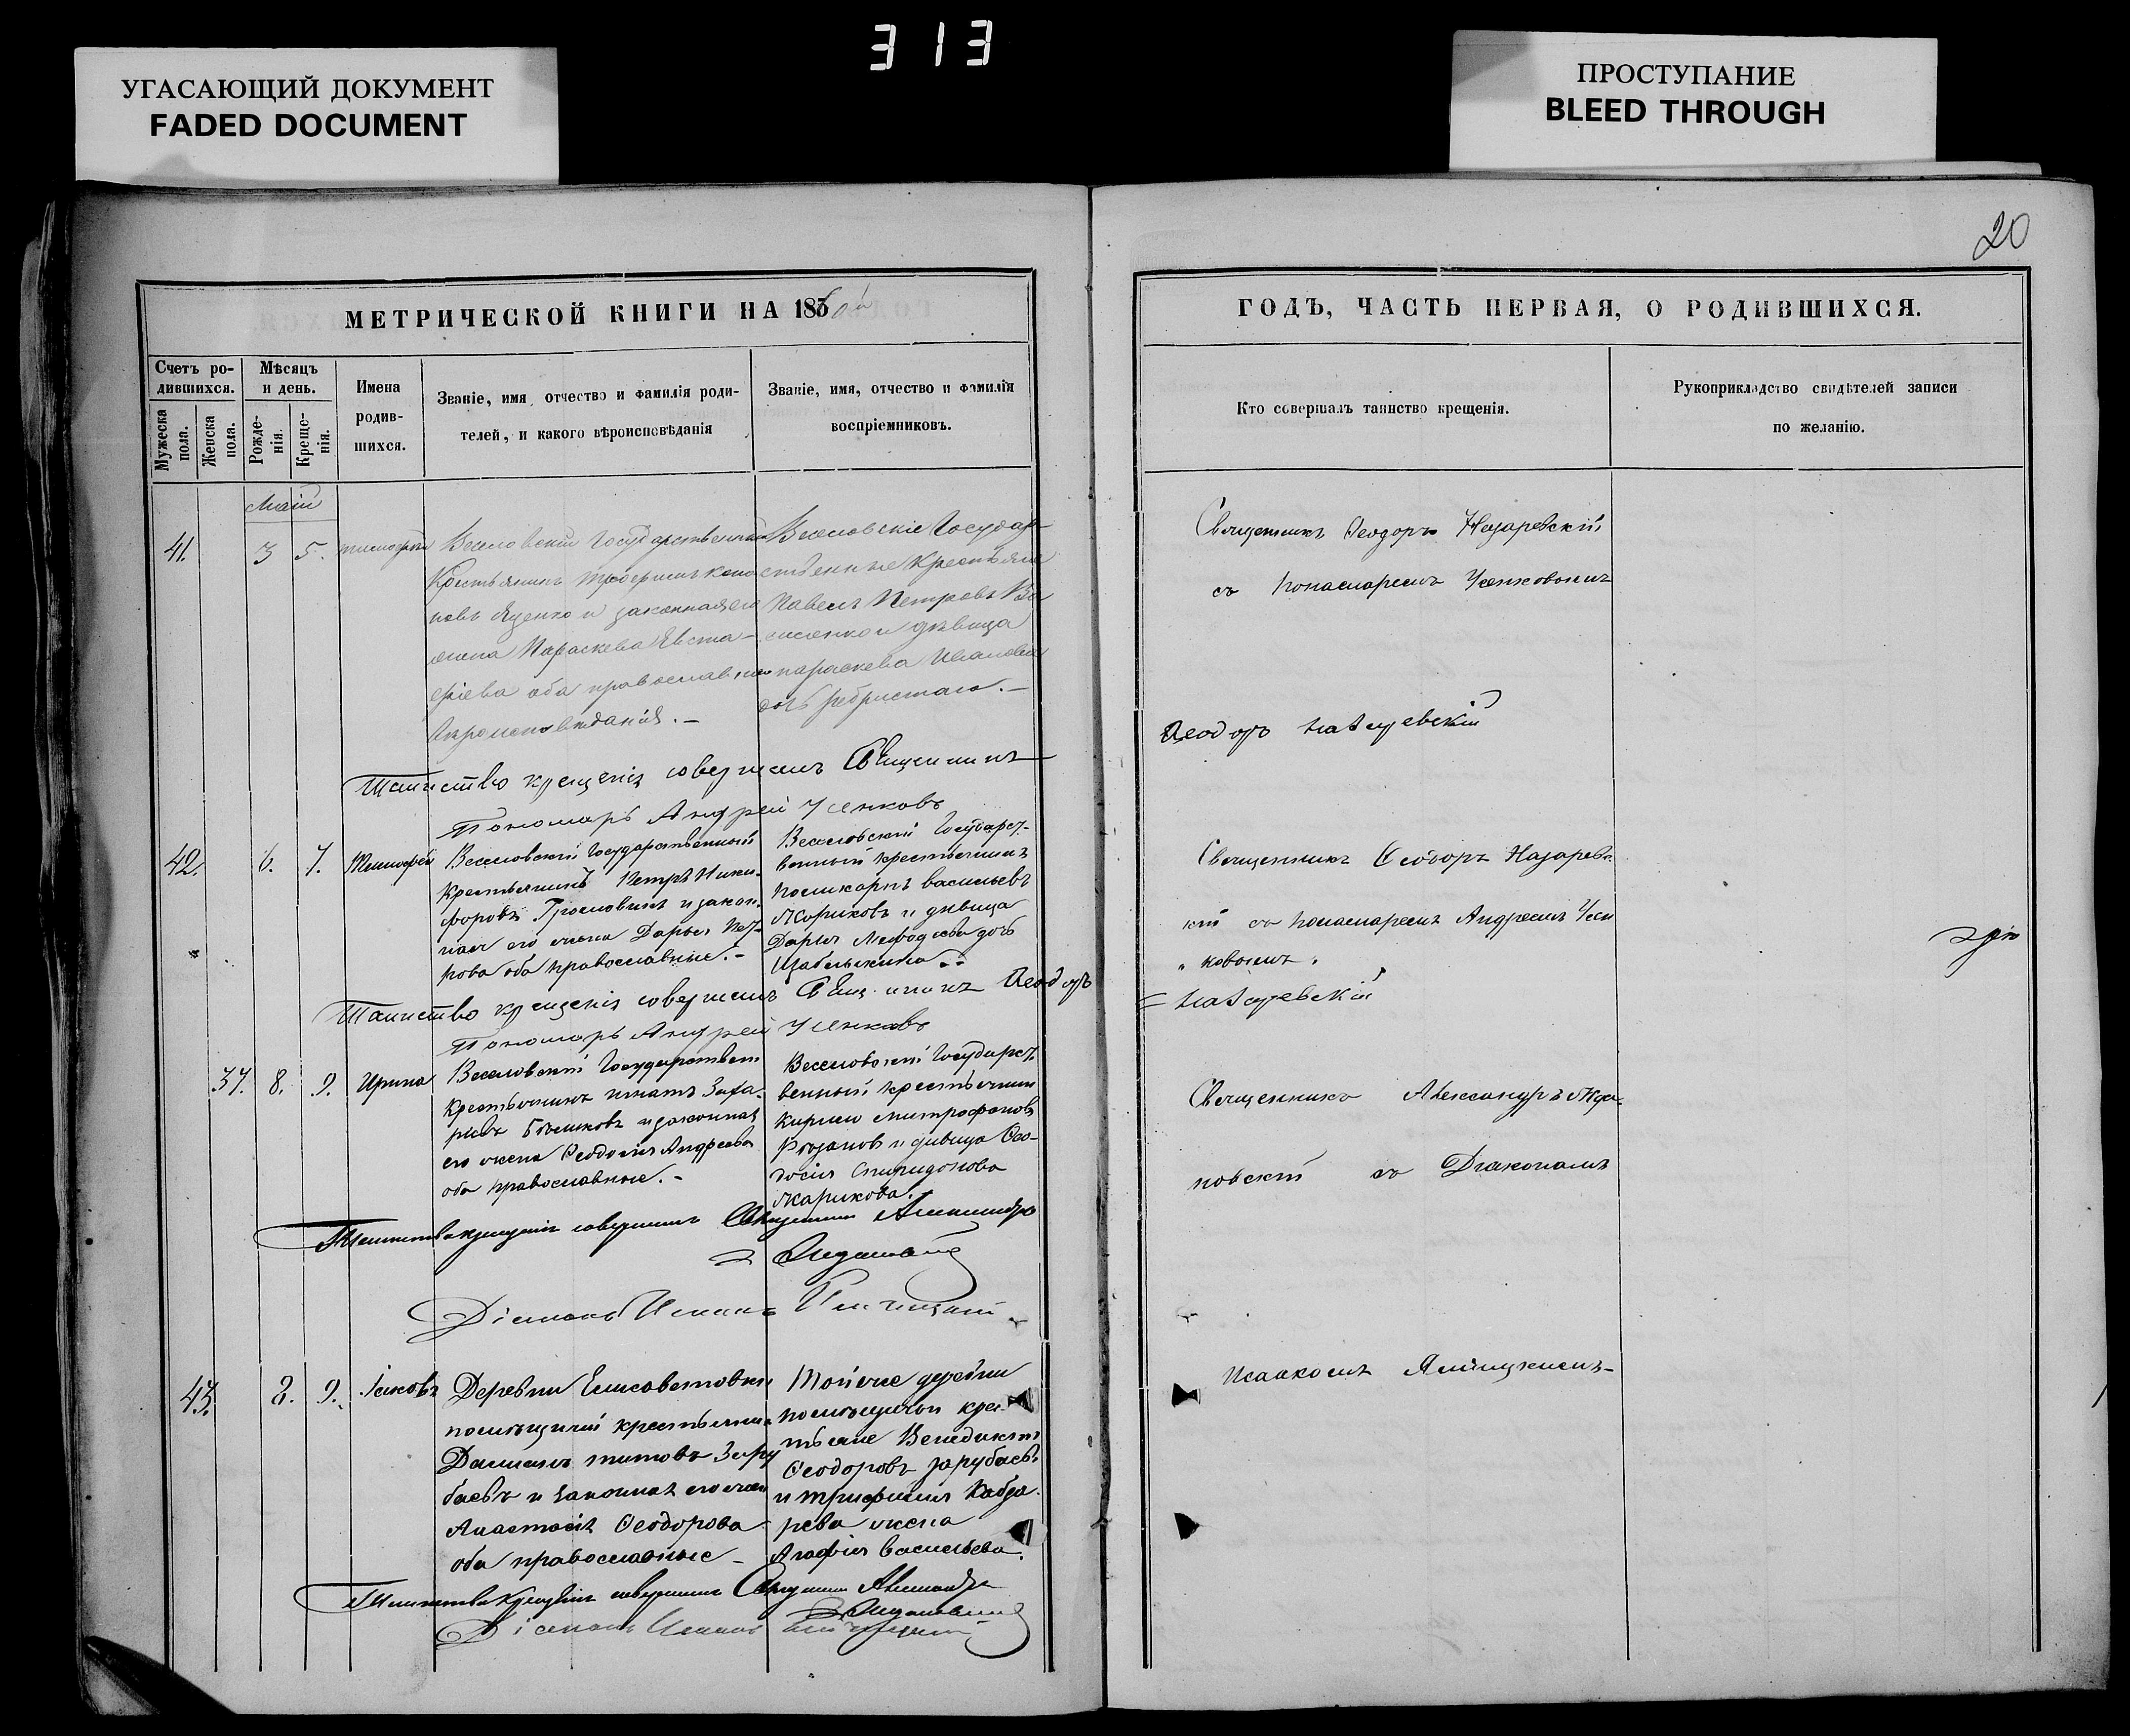 313
УГАСАЮЩИЙ ДОКУМЕНТ
FADED DOCUMENT
ПРОСТУПАНИЕ
BLEED THROUGH
20
МЕТРИЧЕСКОЙ КНИГИ НА 1860й
ГОДЪ, ЧАСТЬ ПЕРВАЯ, О РОДИВШИХСЯ.
Счетъ ро-
дившихся.
Мужеска
пола.
Женска
пола.
Мѣсяцъ
и день.
Рожде-
нія.
Креще-
нія.
Имена
родив-
шихся.
Званіе, имя, отчество и фамилія роди-
телей, и какого вѣроисповѣданія
Званіе, имя, отчество и фамилія
воспріемниковъ.
Кто совершалъ таинство крещенія.
Рукоприкладство свидѣтелей записи
по желанію.
Маій
41. 3 5. тимофей
Веселовскій Государственный
Крестьянинъ
новъ Яценко и законная его
жена Параскева Евста-
фіева оба православнаго
вѣроисповѣданія. –
Веселовскіе Государ-
ственные Крестьяне
Павелъ Петровъ Ва
силенко и дѣвица
параскева Иванова
дочь ребристаго. –
Священникъ Ѳеодоръ Назаревскій
съ пономаремъ Усенковымъ
Таинство крещенія совершилъ Священникъ
Ѳеодоръ Назаревскій
Пономарь Андрей Усенковъ
42. 6. 7. Тимофей
Веселовскій Государственный
Крестьянинъ Петръ Ники-
форовъ и закон-
ная его жена Дарья Пет-
рова оба православные. –
Веселовскій Государст-
венный крестьянинъ
поликарпъ васильевъ
Жориковъ и дѣвица
Дарья Мефодіева дочь
Щабельникова
Священникъ Ѳеодоръ Назаревс-
кій съ пономаремъ Андреемъ Усен
ковымъ.
Таинство крещенія совершилъ Священникъ Ѳеодоръ
= Назаревскій
Пономарь Андрей Усенковъ
37. 8. 9. Ирина
Веселовскій Государствен
Крестьянинъ игнатъ Заха-
рьевъ и законная
его жена Ѳеодосія Андреева
оба православные. –
Веселовскій Государст-
венный крестьянинъ
Кирилъ Митрофановъ
Рязановъ и дѣвица Ѳео-
досія Спиридонова
Жарикова.
Священникъ Александръ Жда-
новскій съ Діакономъ
Исаакомъ Ялицкимъ –
Таинство крещенія совершилъ Священникъ Александръ
Ждановскій
Діаконъ Исаакъ
43. 8. 9. Іаковъ
Деревни Елисаветовки
помѣщичій крестьянинъ
Даміанъ титовъ Зару
баевъ и законная его жена
Анастасія Ѳеодорова
оба православные –
Той же деревни
помѣщичьи крес-
тьяне Венедиктъ
Ѳеодоровъ зарубаевъ
и трифилія Кабза-
рева жена
Агафія Васильева.
Таинство крещенія совершилъ Священникъ Александръ
Ждановскій
Діаконъ Исаакъ